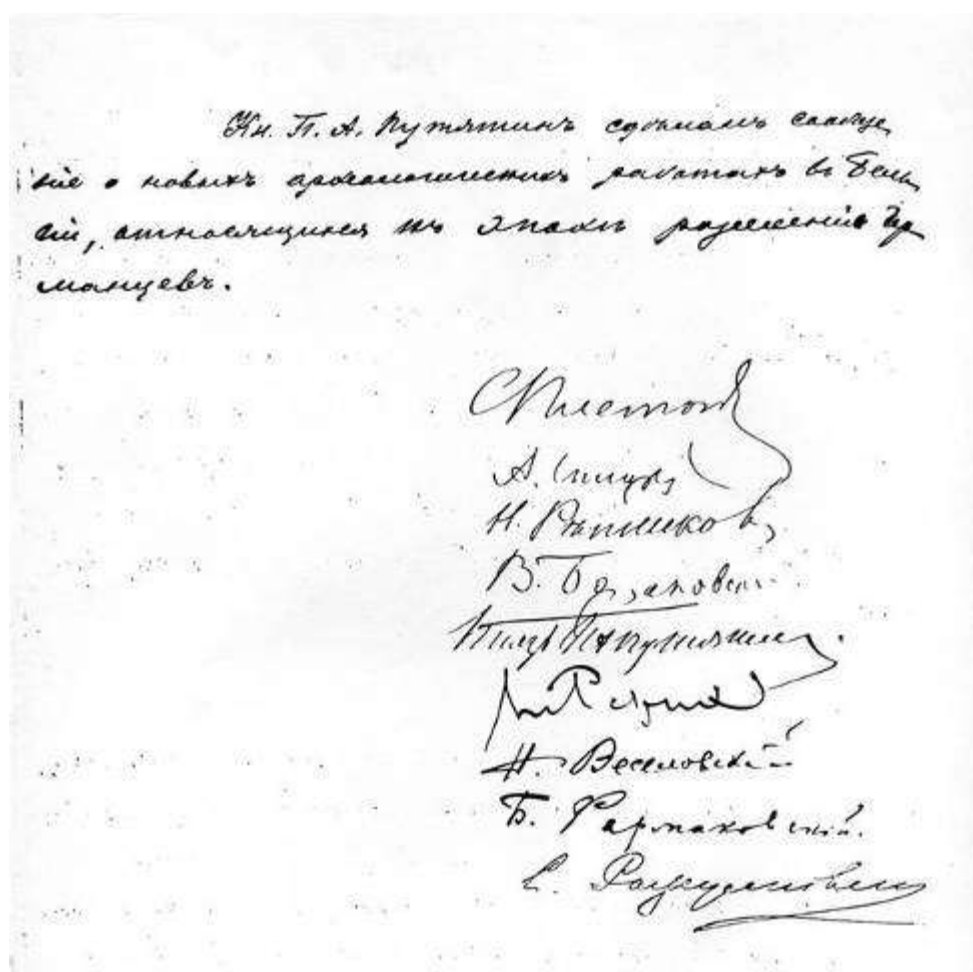 Кн. П. А. Путятинъ сдѣлалъ сообще
ніе о новыхъ археологическихъ работахъ въ Бель
гіи, относящихся къ эпохѣ разселенія гер
манцевъ.
С Платонов
А. Спицынъ
Н. Рѣпниковъ
В.
Князь П А Путятинъ.
Н. Веселовскій
Б. Фармаковскій.